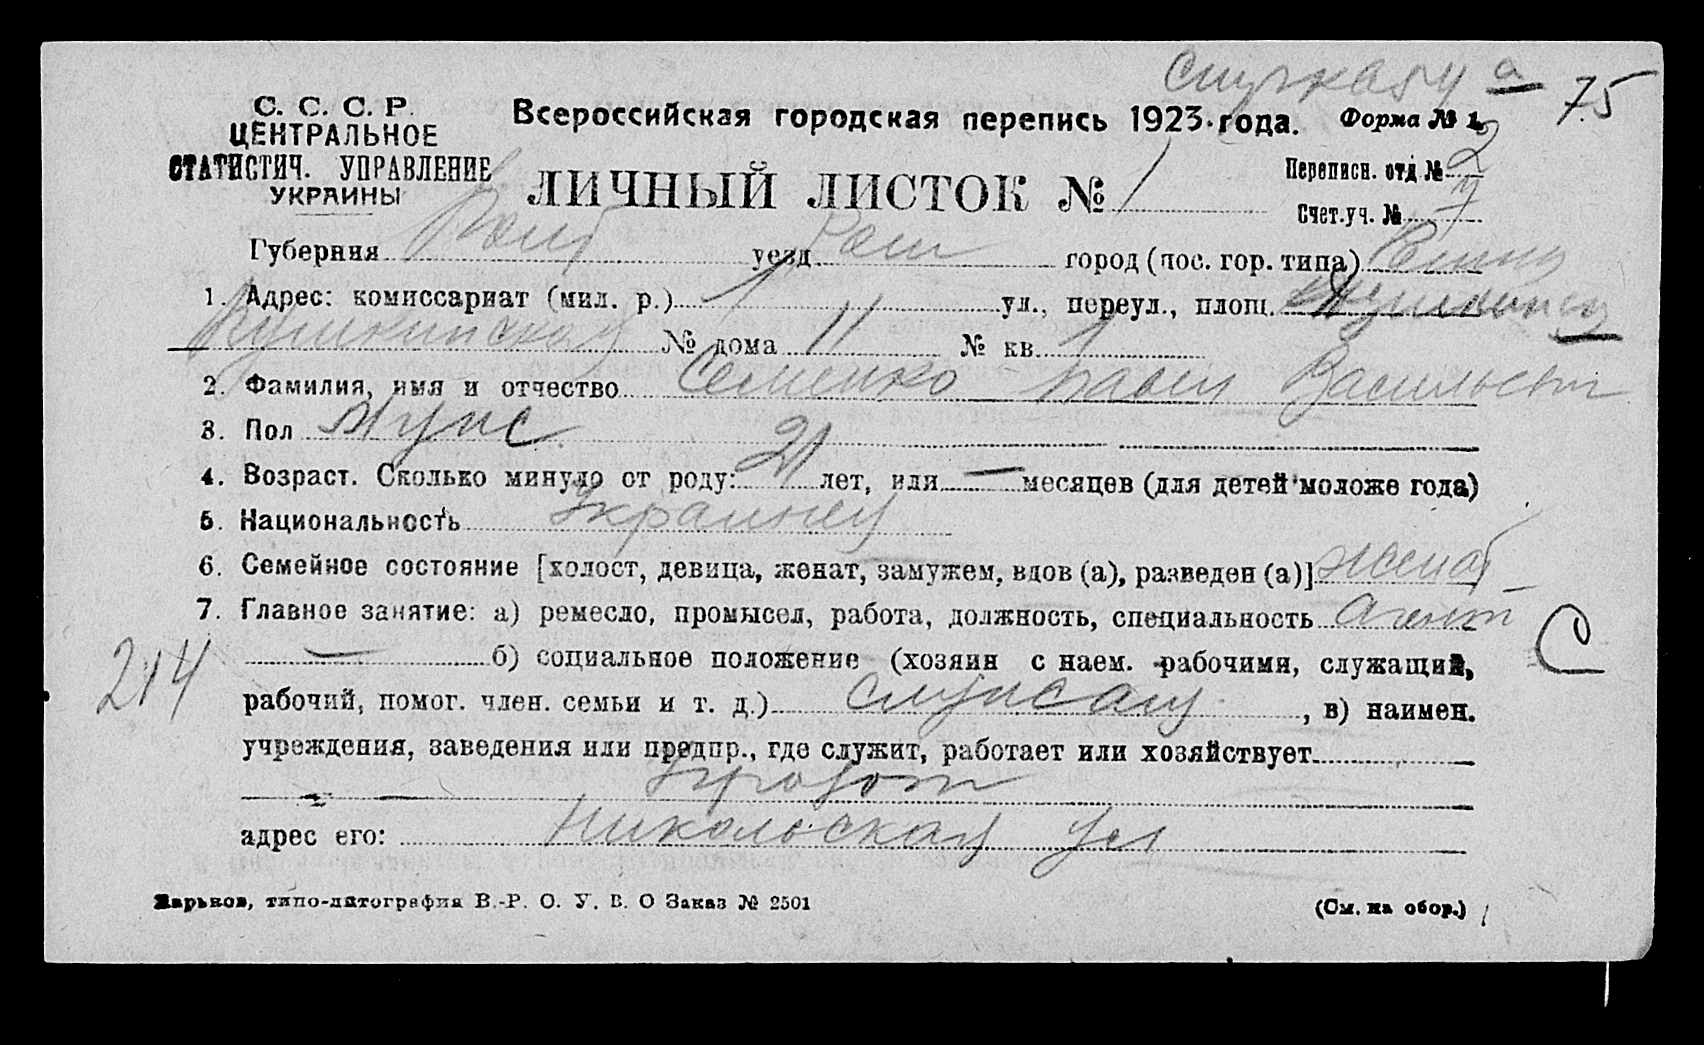 75
С. С. С. Р.
ЦЕНТРАЛЬНОЕ
СТАТИСТИЧ. УПРАВЛЕНИЕ
УКРАИНЫ
Всероссийская городская перепись 1923 года. Форма № 1.
ЛИЧНЫЙ ЛИСТОК № 1
Переписн. отд. № 2
Счет. уч. №
Губерния уезд город (пос. гор. типа)
1. Адрес: комиссариат (мил. р.) 1 ул., переул., площ.
Пушкинская № дома 11 № кв. 1
2. Фамилия, имя и отчество Семенко Павел Васильевич
3. Пол Мужс
4. Возраст. Сколько минуло от роду: 21 лет, или — месяцев (для детей моложе года)
5. Национальность Украинец
6. Семейное состояние [холост, девица, женат, замужем, вдов (а), разведен (а)] женат
7. Главное занятие: а) ремесло, промысел, работа, должность, специальность Агент
С
214
— б) социальное положение (хозяин с наем. рабочими, служащий,
рабочий, помог. член. семьи и т. д.) служащ , в) наимен.
учреждения, заведения или предпр., где служит, работает или хозяйствует
адрес его: Никольская ул
Харьков, типо-литография В.-Р. О. У. В. О Заказ № 2501
(См. на обор.)